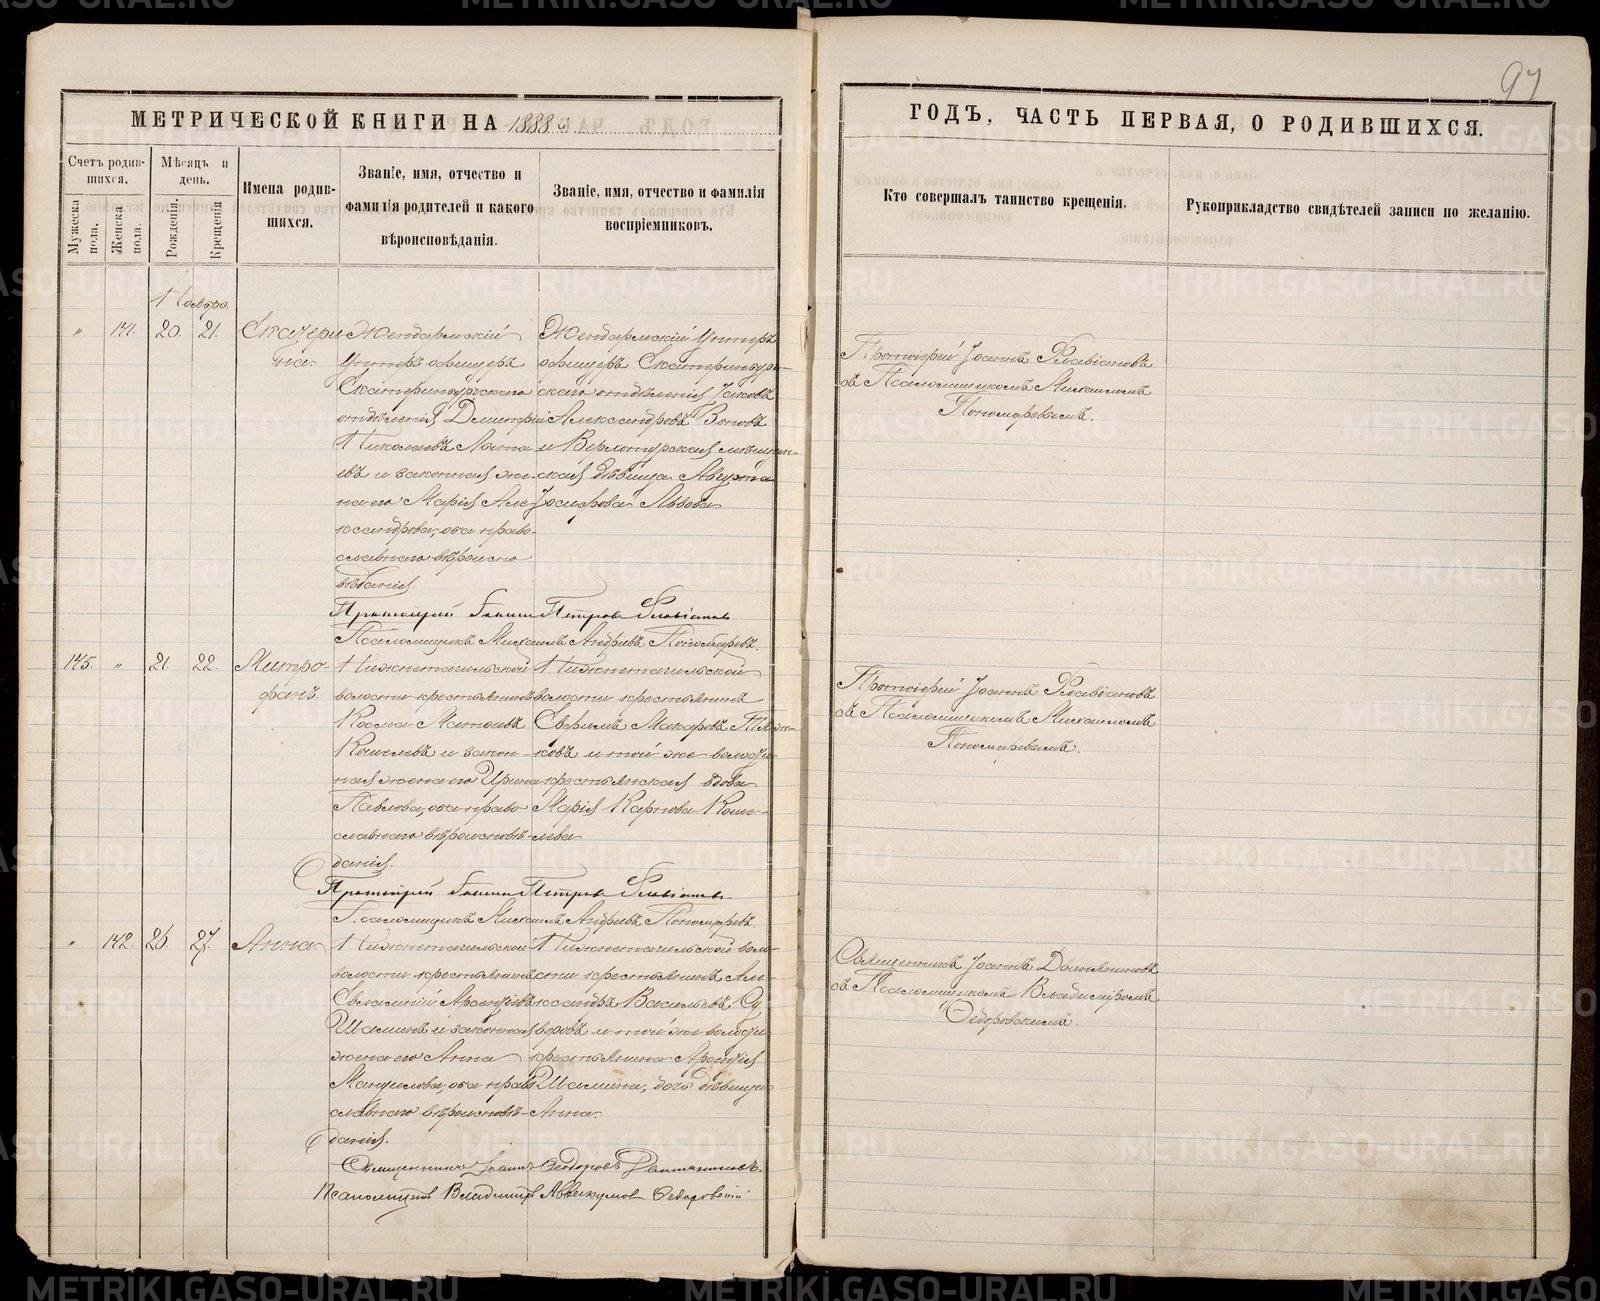 97
МЕТРИЧЕСКОЙ КНИГИ НА 1888 г.
ГОДЪ, ЧАСТЬ ПЕРВАЯ, О РОДИВШИХСЯ.
Счетъ родив-
шихся.
Мужеска пола.
Женска пола.
Мѣсяцъ и
день.
Рожденія.
Крещенія
Имена родив-
шихся.
Званіе, имя, отчество и
фамилія родителей и какого
вѣроисповѣданія.
Званіе, имя, отчество и фамилія
воспріемниковъ.
Кто совершалъ таинство крещенія.
Рукоприкладство свидѣтелей записи по желанію.
Ноября
" 141. 20. 21.
Екатери
на.
Жендармскій
Унтеръ офицеръ
Екатеринбургскаго
отдѣленія Дмитрій
Николаевъ
и законная же-
на его Марія Але-
ксандрова, оба право-
славнаго вѣроиспо
вѣданія.
Жендармскій Унтеръ
офицеръ Екатеринбург-
скаго отдѣленія Іаковъ
Александровъ
и Верхотурская мѣщан-
ская дѣвица Августа
Львова
Протоіерей Іоаннъ Флавіановъ
съ Псаломщикомъ Михаиломъ
Пономаревымъ.
Протоіерей Іоаннъ Петровъ Флавіановъ
Псаломщикъ Михаилъ Андреевъ Пономаревъ.
145. " 21. 22.
Митро-
фанъ
Нижнетагильской
волости крестьянинъ
Косма Матѳеевъ
Кошелевъ и закон-
ная жена его Ирина
Павлова, оба право
славнаго вѣроисповѣ-
данія.
Нижнетагильской
волости крестьянинъ
Ефримъ Макаровъ
и той же волости
крестьянская вдова
Марія Карпова Коше-
лева
Протоіерей Іоаннъ Флавіановъ
съ Псаломщикомъ Михаиломъ
Пономаревымъ.
Протоіерей Іоаннъ Петровъ Флавіановъ
Псаломщикъ Михаилъ Андреевъ Пономаревъ.
" 142. 26. 27.
Анна
Нижнетагильской
волости крестьянинъ
Евлампій Арсеніевъ
Шаминъ и законная
жена его Анна
Мануилова, оба право
славнаго вѣроисповѣ-
данія.
Нижнетагильской воло-
сти крестьянинъ Але-
ксандръ Васильевъ Су
воровъ и той же волости
крестьянина Арсенія
Шамина, дочь дѣвица
Анна.
Священникъ Іоаннъ Двиняниновъ
съ Псаломщикомъ Владиміромъ
Ѳедоровскимъ.
Священникъ Іоаннъ Ѳеодоровъ
Псаломщикъ Владиміръ Аввакумовъ Ѳедоровскій
METRIKI.GASO-URAL.RU